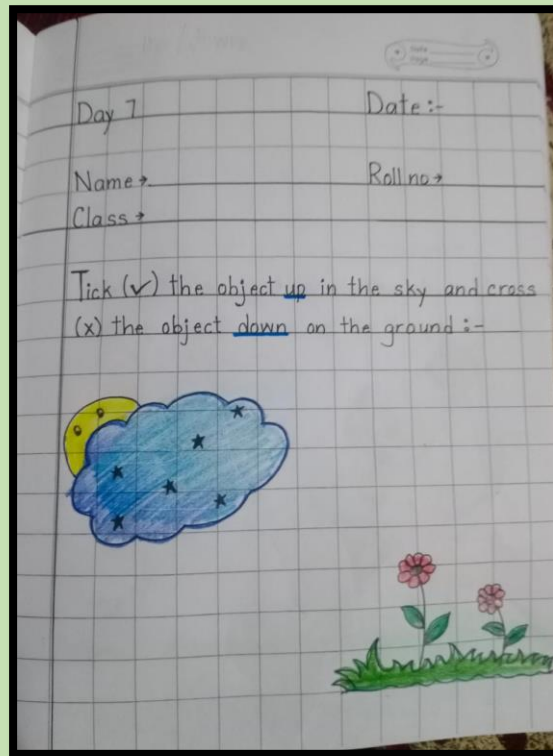 Date
Page
Day 7 Date:-
Name→ Roll no→
Class→
Tick (✓) the object up in the sky and cross
(x) the object down on the ground :-